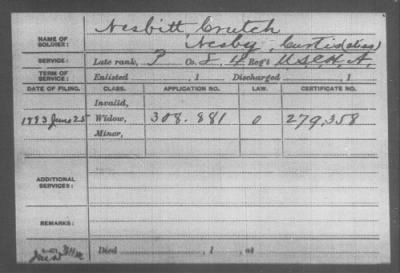 NAME OF SOLDIER: Nesbitt, Crutch
Nesby, Curtis (alias)
SERVICE: Late rank, P Co. L, 4 Reg't U.S.C.H.A.
TERM OF SERVICE: Enlisted , 1 Discharged , 1
DATE OF FILING. CLASS. APPLICATION NO. LAW. CERTIFICATE NO.
Invalid,
1883 June 25 Widow, 308.881 0 279,358
Minor,
ADDITIONAL SERVICES:
REMARKS:
Died , 1 , at